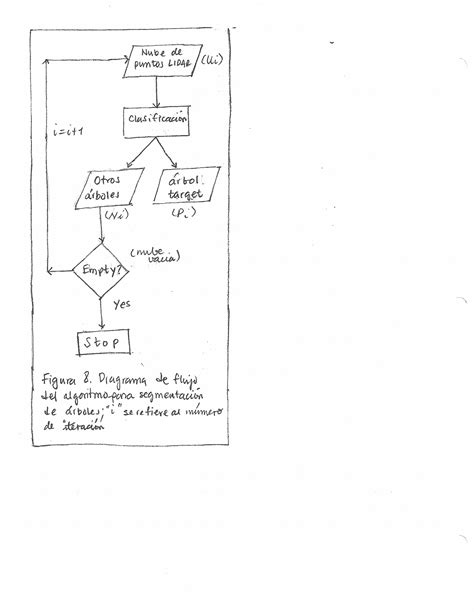 Nube de
puntos LIDAR
(Ui)
Clasificación
i=i+1
Otros
árboles
(Ni)
árbol
target
(Pi)
Empty?
(nube
vacía)
Yes
Stop
Figura 8. Diagrama de flujo
del algoritmo para segmentación
de árboles; "i" se refiere al número
de iteración